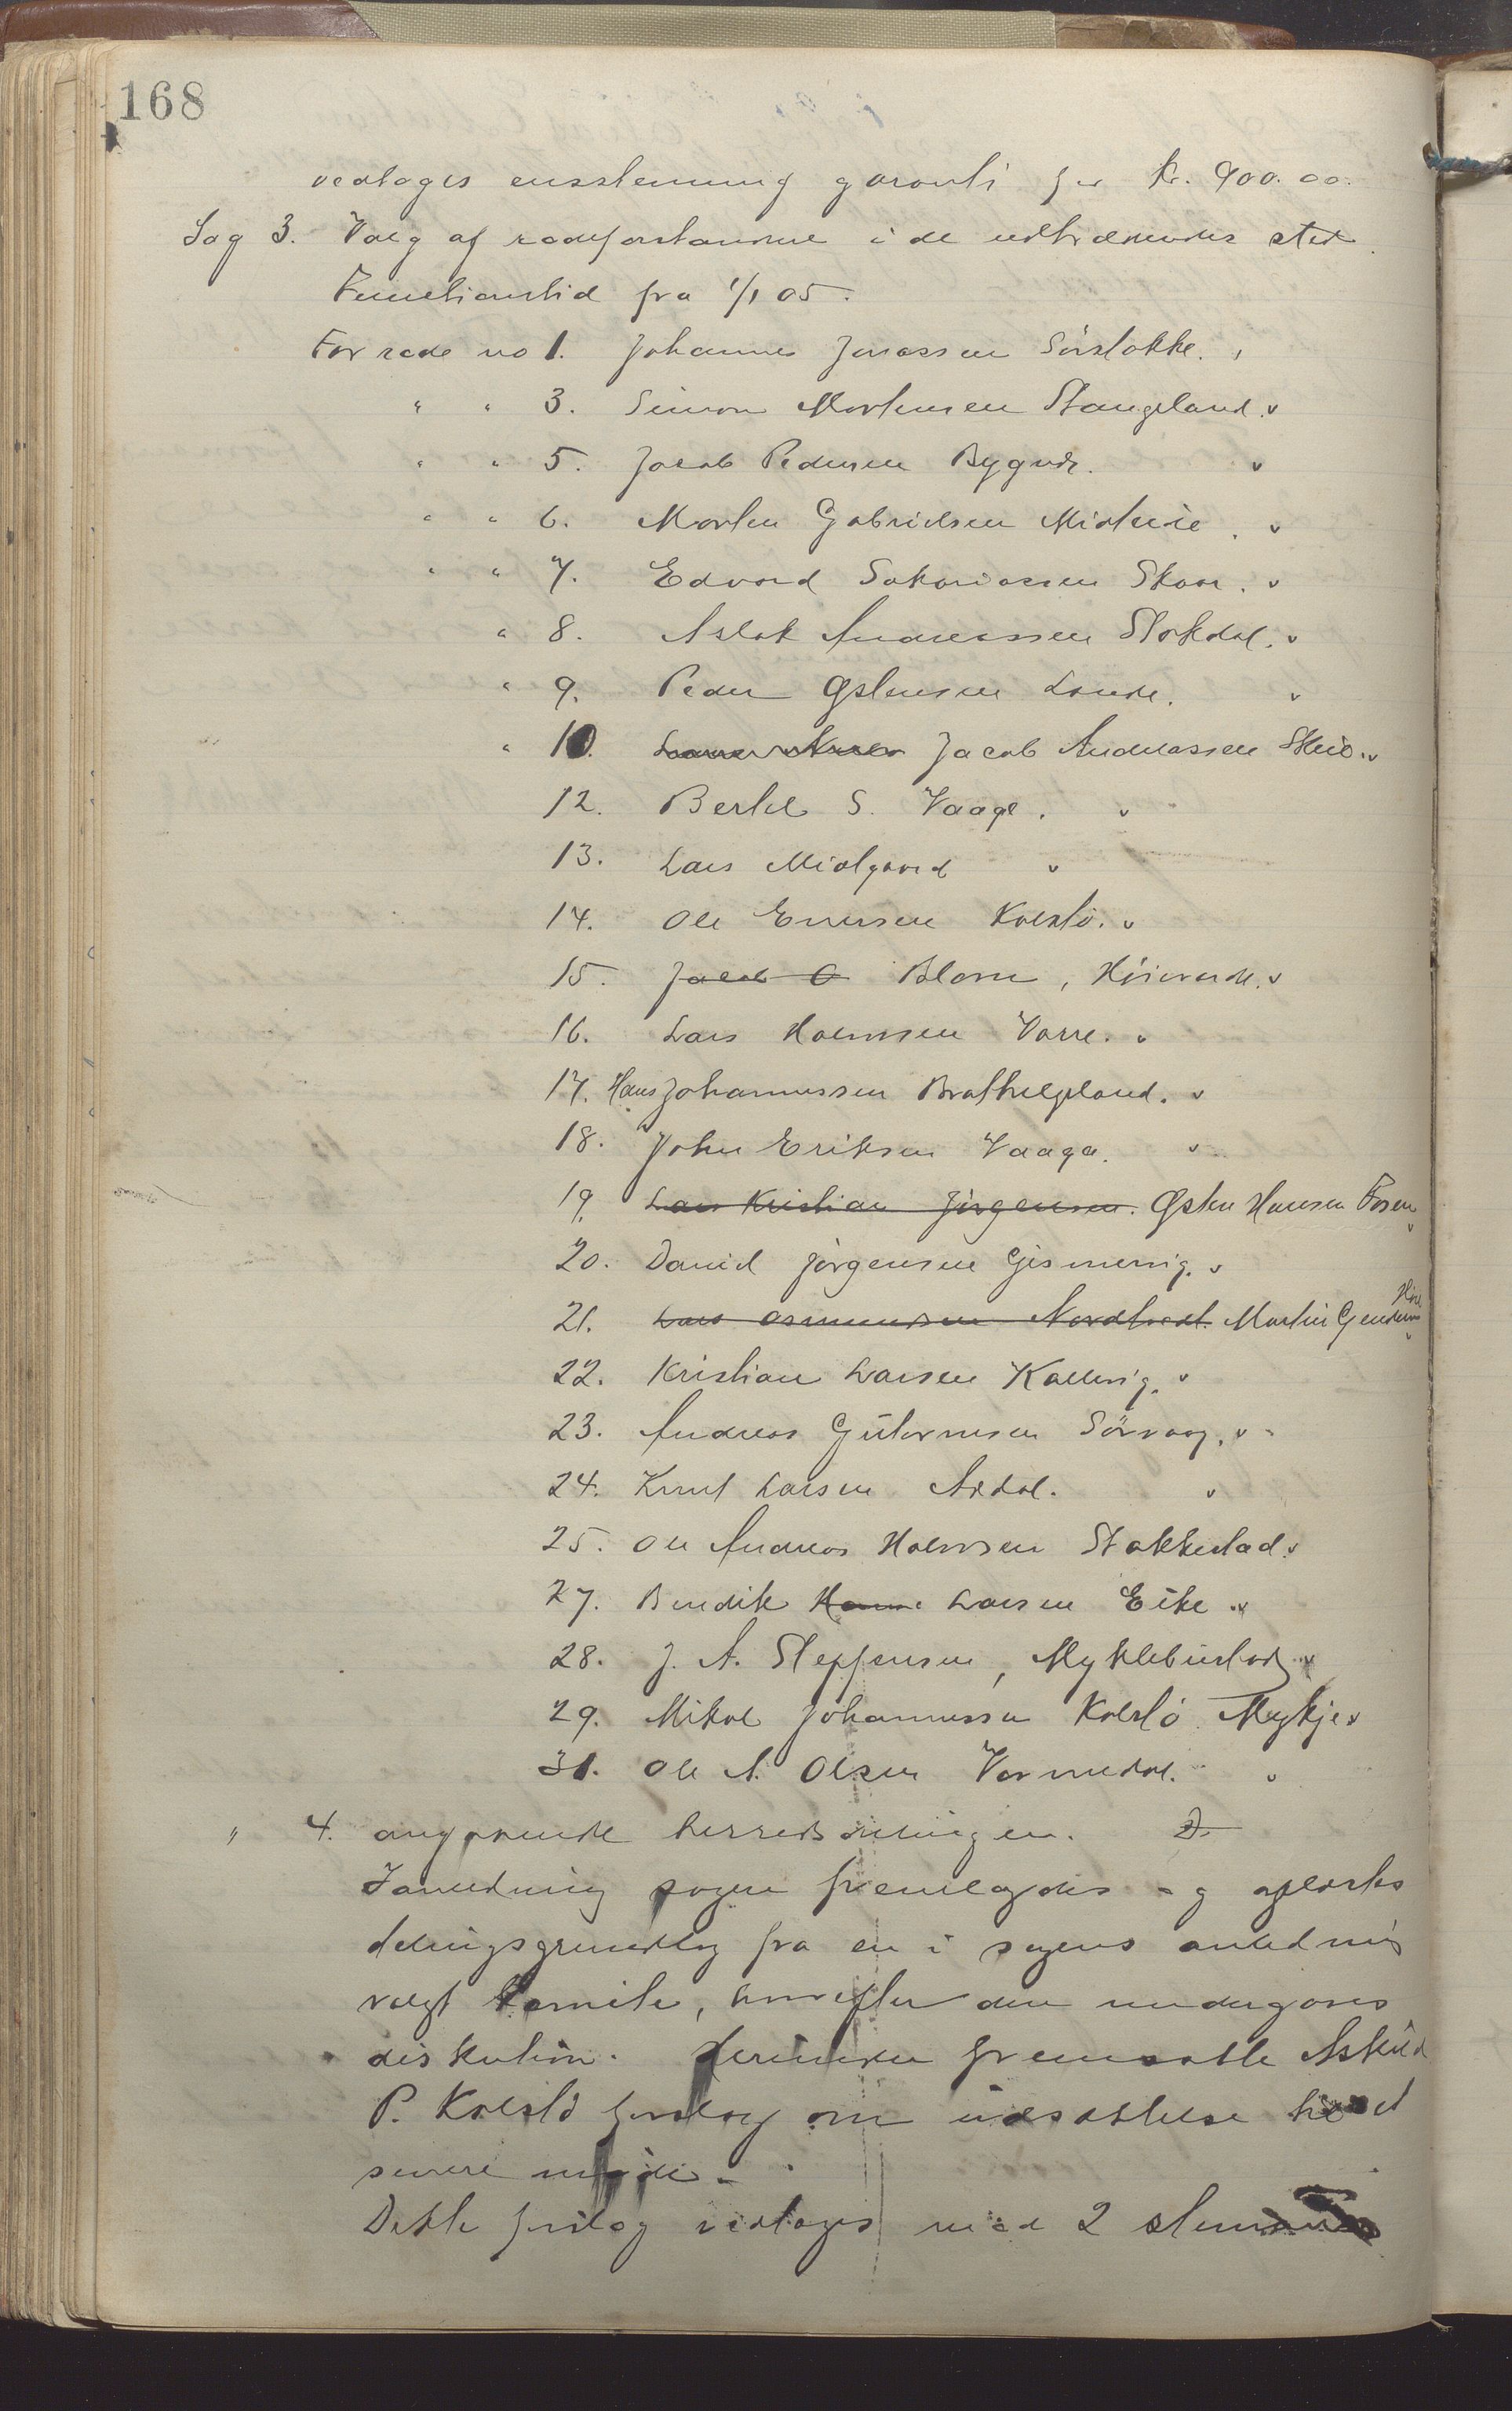 168
vedtages ensstemmig garanti for kr. 900.00.
Sag 3. Valg af rodeforstandere i de udtrædendes sted.
Functionstid fra 1/1 05.
For rode no 1. Johannes Jonassen Sörstokke.
" " 3. Simon Mortensen Stangeland. v
" " 5. Jacob Pedersen Bygnes. v
" " 6. Morten Gabrielsen Midteie. v
" " 7. Edvard Sakariassen Skaar. v
" 8. Aslak Andreassen Stokdal. v
" 9. Peder Østensen Lande. v
" 10. Jacob Andreassen Skeie. v
12. Bertel S. Vaage. v
13. Lars Midgaard v
14. Ole Enersen Kolstö. v
15. Jacob O Blom, Höievarde. v
16. Lars Holmsen Vorre. v
17. Hans Johannessen Brathelgeland. v
18. John Eriksen Vaaga. v
19. Lars Kristian Jörgensen. Østen Hansen Fosen v
20. David Jörgensen Gismervig. v
21. Lars Osmundsen Nordtveit. Martin
22. Kristian Larsen Kallevig. v
23. Andreas Gutormsen Sörvaag. v
24. Knut Larsen Årdal. v
25. Ole Andreas Holmsen Stakkestad. v
27. Bendik Hans Larsen Eike v
28. J. A. Steffensen, Myklebustad v
29. Mikal Johannessen Kolstö Mykje v
31. Ole A. Olsen Vormedal. v
" 4. angaaende herredsdelingen. D.
I anledning sagen fremlagdes og oplæstes
delingsgrundlag fra en i sagens anledning
valgt komite, hvorefter den undergaves
diskution. Herunder fremsatte Askild
P. Kolstö forslag om udsættelse til et
senere möde.
Dette forslag vedtages med 2